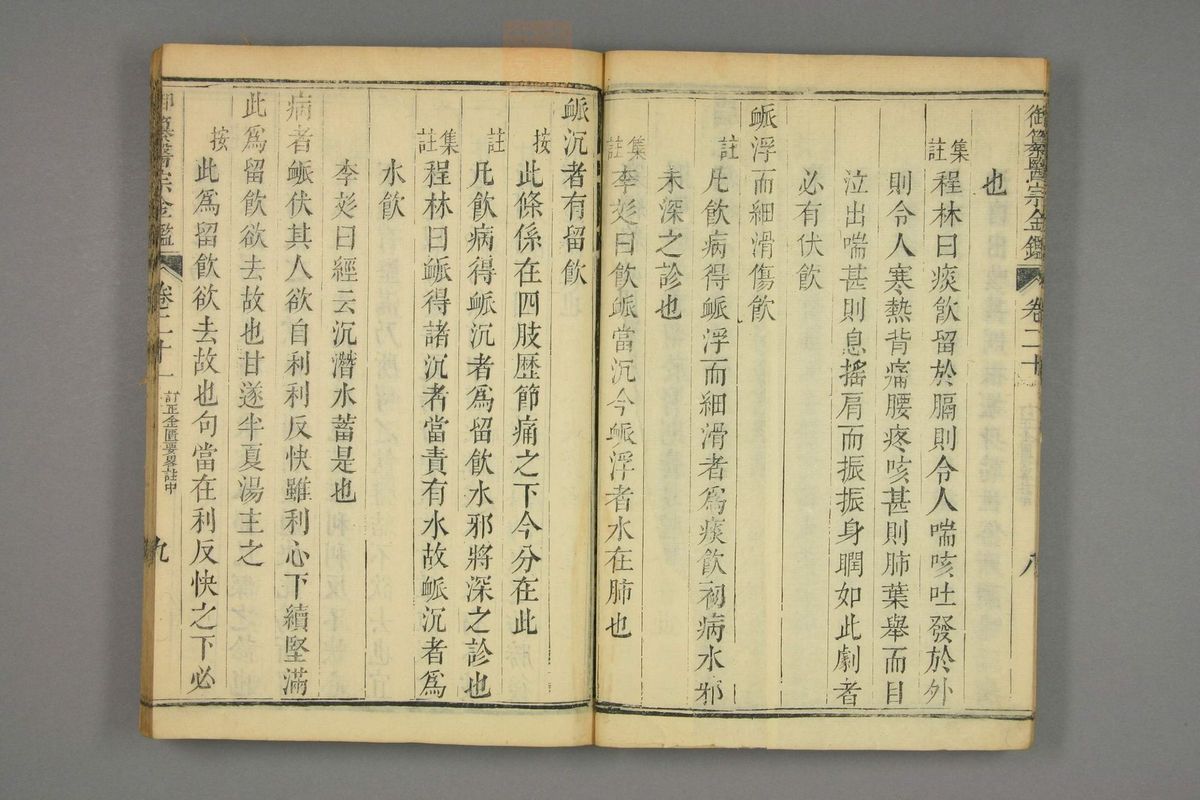 御纂醫宗金鑑 卷二十 八
也
集註 程林曰痰飲留於膈則令人喘咳吐發於外
則令人寒熱背痛腰疼咳甚則肺葉舉而目
泣出喘甚則息搖肩而振振身瞤如此劇者
必有伏飲
䘑浮而細滑傷飲
註 凡飲病得䘑浮而細滑者爲痰飲初病水邪
未深之診也
集註 李彣曰飲䘑當沉今䘑浮者水在肺也
䘑沉者有留飲
按 此條係在四肢歷節痛之下今分在此
註 凡飲病得䘑沉者爲留飲水邪將深之診也
集註 程林曰䘑得諸沉者當責有水故䘑沉者爲
水飲
李彣曰經云沉潛水蓄是也
病者䘑伏其人欲自利利反快雖利心下續堅滿
此爲留飲欲去故也甘遂半夏湯主之
按 此爲留飲欲去故也句當在利反快之下必
御纂醫宗金鑑 卷二十一 訂正金匱要畧註中 九